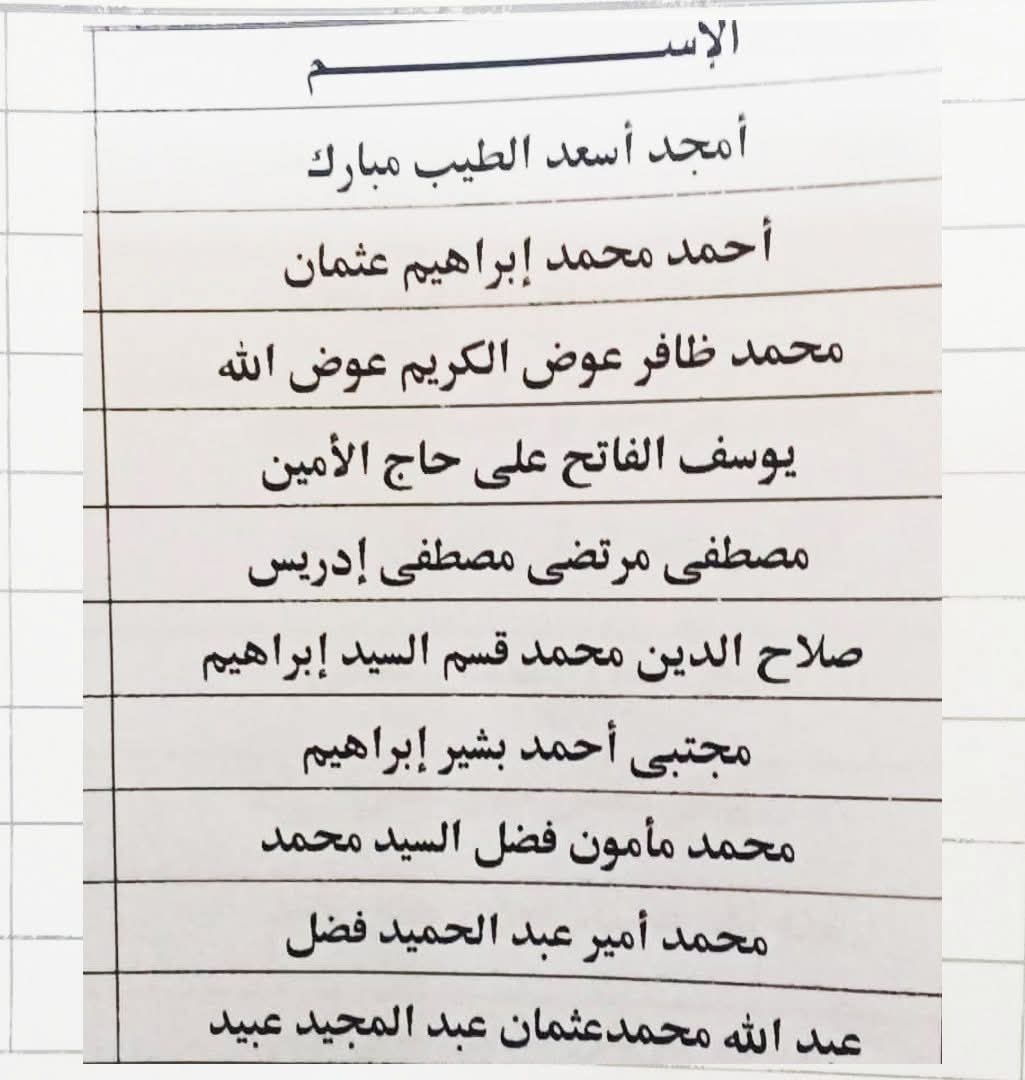 الإســـــــــم
أمجد أسعد الطيب مبارك
أحمد محمد إبراهيم عثمان
محمد ظافر عوض الكريم عوض الله
يوسف الفاتح على حاج الأمين
مصطفى مرتضى مصطفى إدريس
صلاح الدين محمد قسم السيد إبراهيم
مجتبى أحمد بشير إبراهيم
محمد مأمون فضل السيد محمد
محمد أمير عبد الحميد فضل
عبد الله محمدعثمان عبد المجيد عبيد